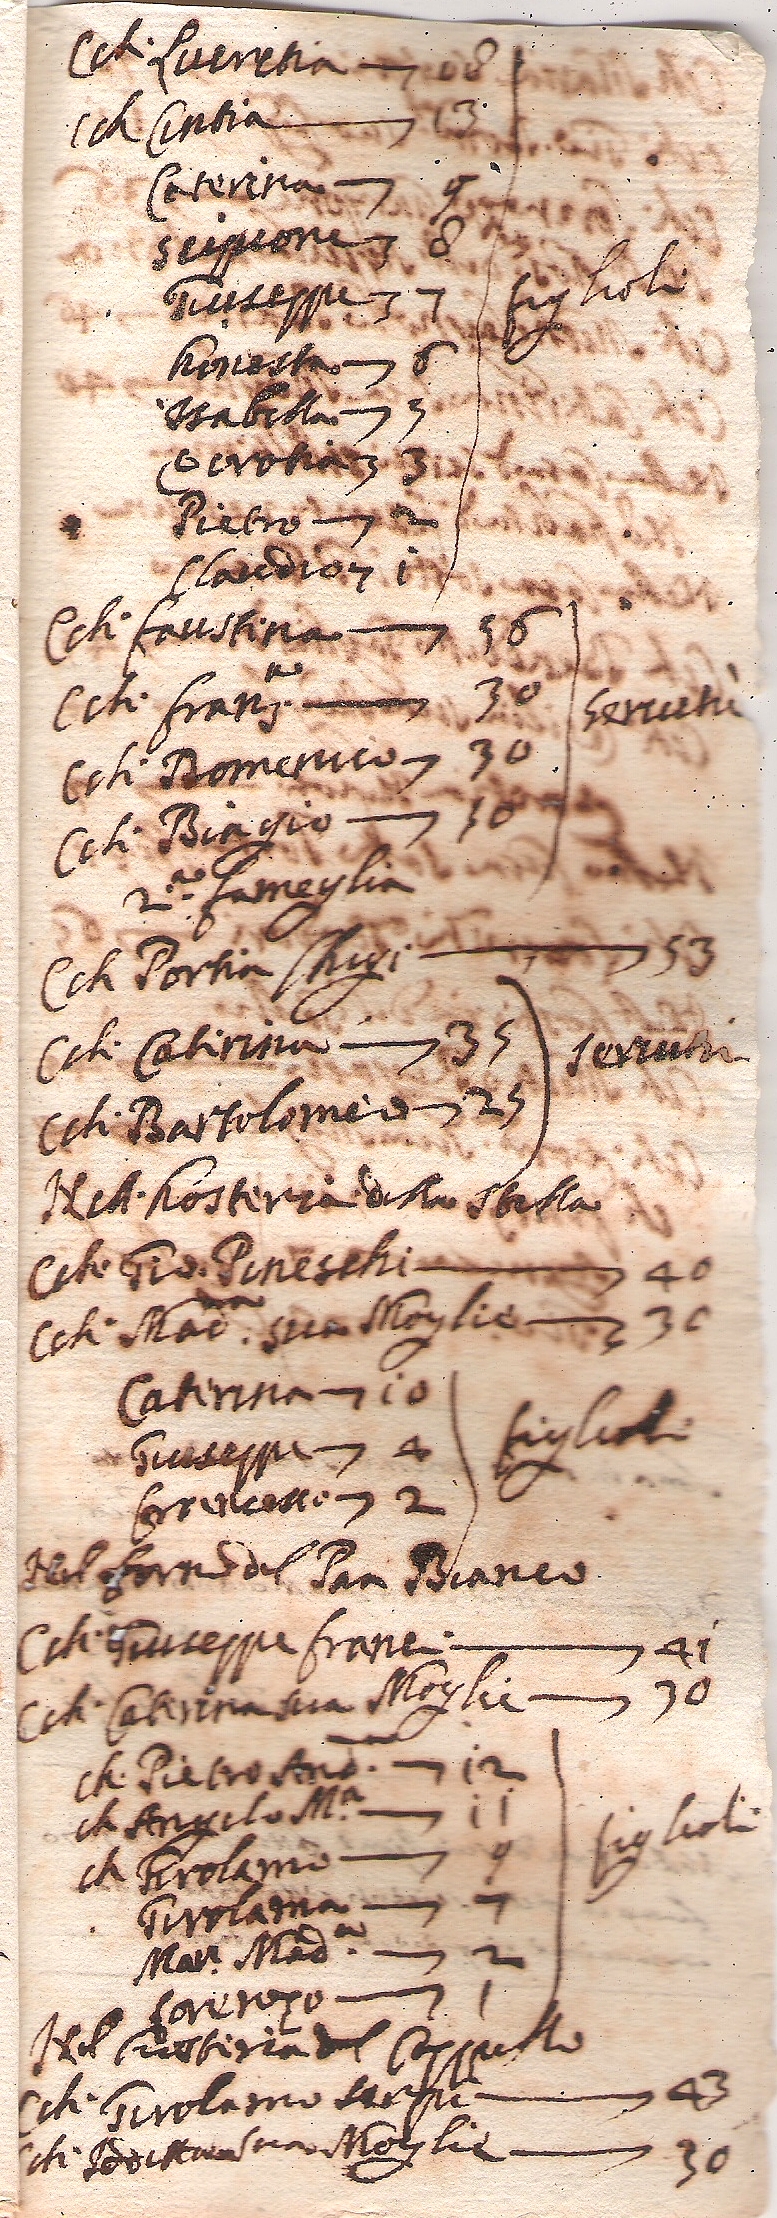 Cch. Lucretia — 08
Cch Cintia — 13
Caterina — 9
Scippione 8
Giuseppe 7 figlioli
honesta — 6
Isabella — 5
Dorotia 3
Pietro — 2
Claudio 1
Cch. faustina — 56
Cch. fran.ca — 30 seruitù
Cch. Domenico 30
Cch. Biagio — 30
2.a fameglia
Cch Portia Chigi — 53
Cch. Caterina — 35 seruitù
Cch. Bartolomeo 25
Nell. hosteria della Stella
Cch. Gio. Pineschi — 40
Cch. Mad.na sua Moglie — 30
Caterina — 10
Giuseppe 4 figlioli
francesco 2
Nel forno del Pan Bianco
Cch. Giuseppe — 41
Cch. Caterina sua Moglie — 30
ch. Pietro And. — 12
ch Angelo M.a — 11
ch Girolamo — 9 figlioli
Girolama — 7
Mar. Mad.a — 2
Lorenzo — 1
Nel hosteria del Cappello
Cch. Girolamo — 43
Cch. sua Moglie — 30